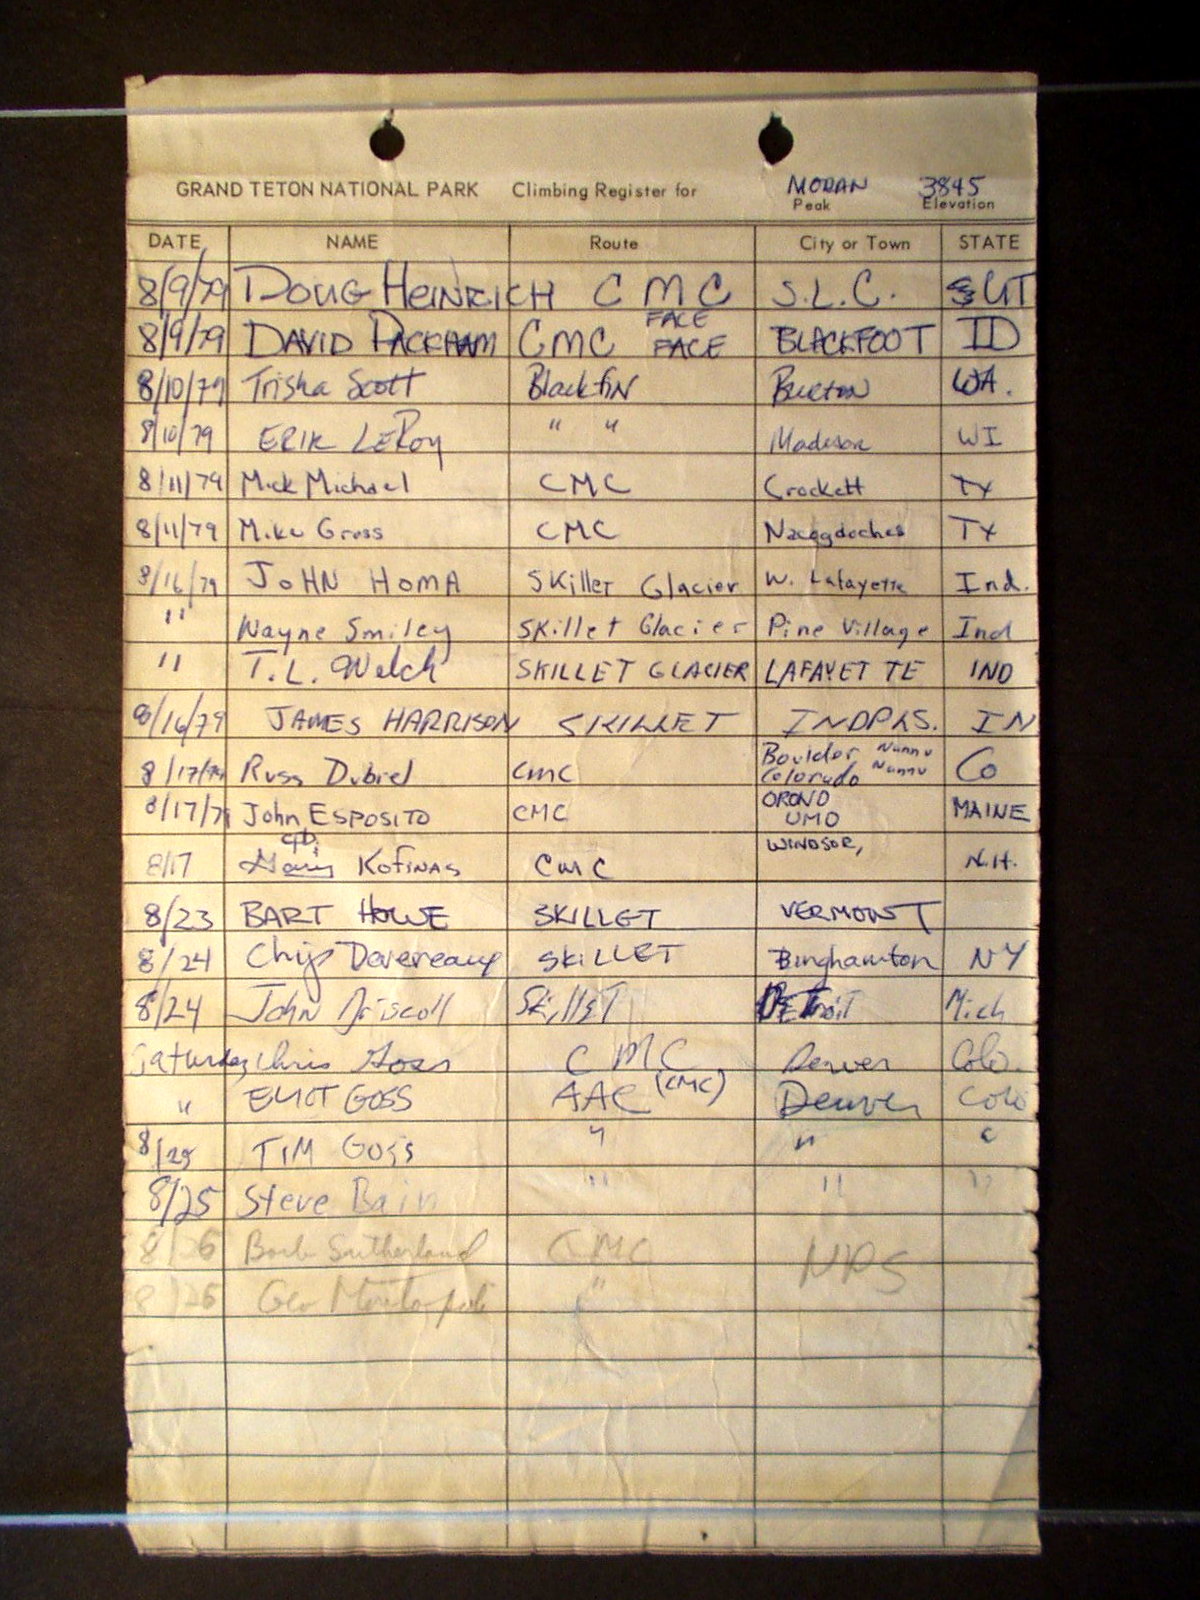 GRAND TETON NATIONAL PARK Climbing Register for MORAN 3845
Peak Elevation
DATE NAME Route City or Town STATE
8/9/79 DOUG HEINRICH CMC FACE S.L.C. UT
8/9/79 DAVID PACKHAM CMC FACE BLACKFOOT ID
8/10/79 Trisha Scott Blackfin Burton WA.
8/10/79 ERIK LeRoy " " Madison WI
8/11/79 Mick Michael CMC Crockett TX
8/11/79 Mike Gross CMC Nacogdoches TX
8/16/79 JOHN HOMA Skillet Glacier W. Lafayette Ind.
" Wayne Smiley Skillet Glacier Pine Village Ind
" T.L. Welch SKILLET GLACIER LAFAYETTE IND
8/16/79 JAMES HARRISON SKILLET INDPLS. IN
8/17/79 Russ Dubiel CMC Boulder Nunnu Colorado Nunnu Co
8/17/79 John ESPOSITO CMC ORONO UMO MAINE
8/17 Gary KOFINAS CMC WINDSOR, N.H.
8/23 BART HOWE SKILLET VERMONT
8/24 Chip Devereaux SKILLET Binghamton NY
8/24 John Driscoll SkillET DETroiT Mich
Saturday Chris Goss CMC Denver Colo.
" ELIOT GOSS AAC (CMC) Denver Colo
8/25 TIM GOSS " " "
8/25 Steve Bain " " "
8/26 Barb Sutherland CMC NPS
8/26 Geo "